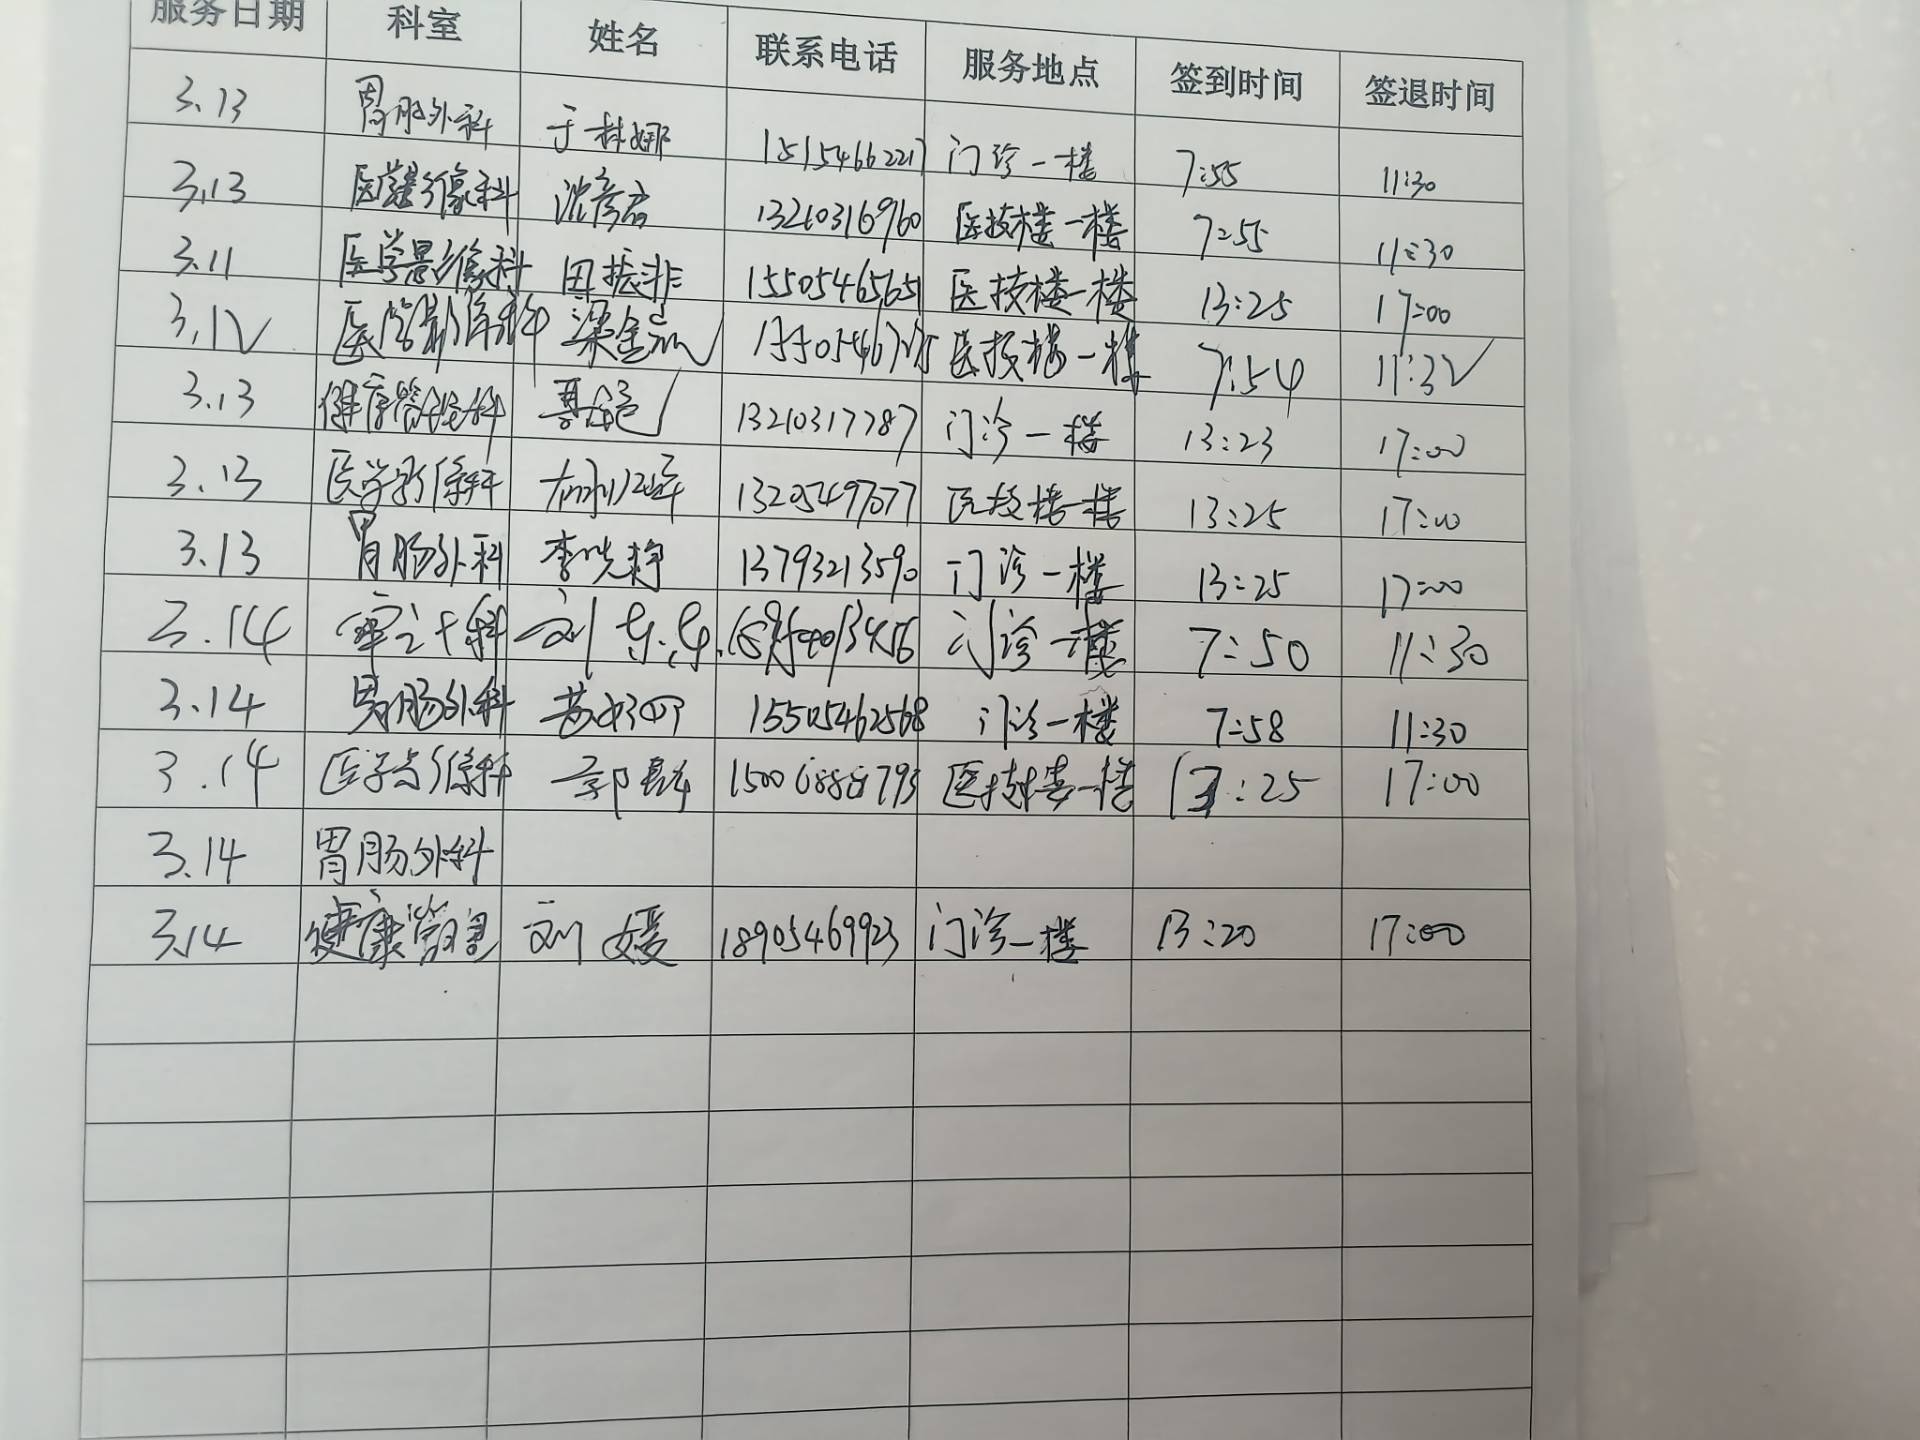 服务日期 科室 姓名 联系电话 服务地点 签到时间 签退时间
3.13 胃肠外科 于林娜 15154662217 门诊一楼 7:55 11:30
3.13 医学影像科 沈彦君 13210316960 医技楼一楼 7:55 11:30
3.11 医学影像科 田振非 15505465651 医技楼一楼 13:25 17:00
3.12 医学影像科 医技楼一楼 7:54 11:32
3.13 健康管理科 13210317787 门诊一楼 13:23 17:00
3.13 医学影像科 13205497077 医技楼一楼 13:25 17:00
3.13 胃肠外科 李晓梅 13793213590 门诊一楼 13:25 17:00
3.14 审计科 门诊一楼 7:50 11:30
3.14 胃肠外科 15505462568 门诊一楼 7:58 11:30
3.14 医学影像科 郭 医技楼一楼 13:25 17:00
3.14 胃肠外科
3.14 健康管理 刘媛 18905469923 门诊一楼 13:20 17:00